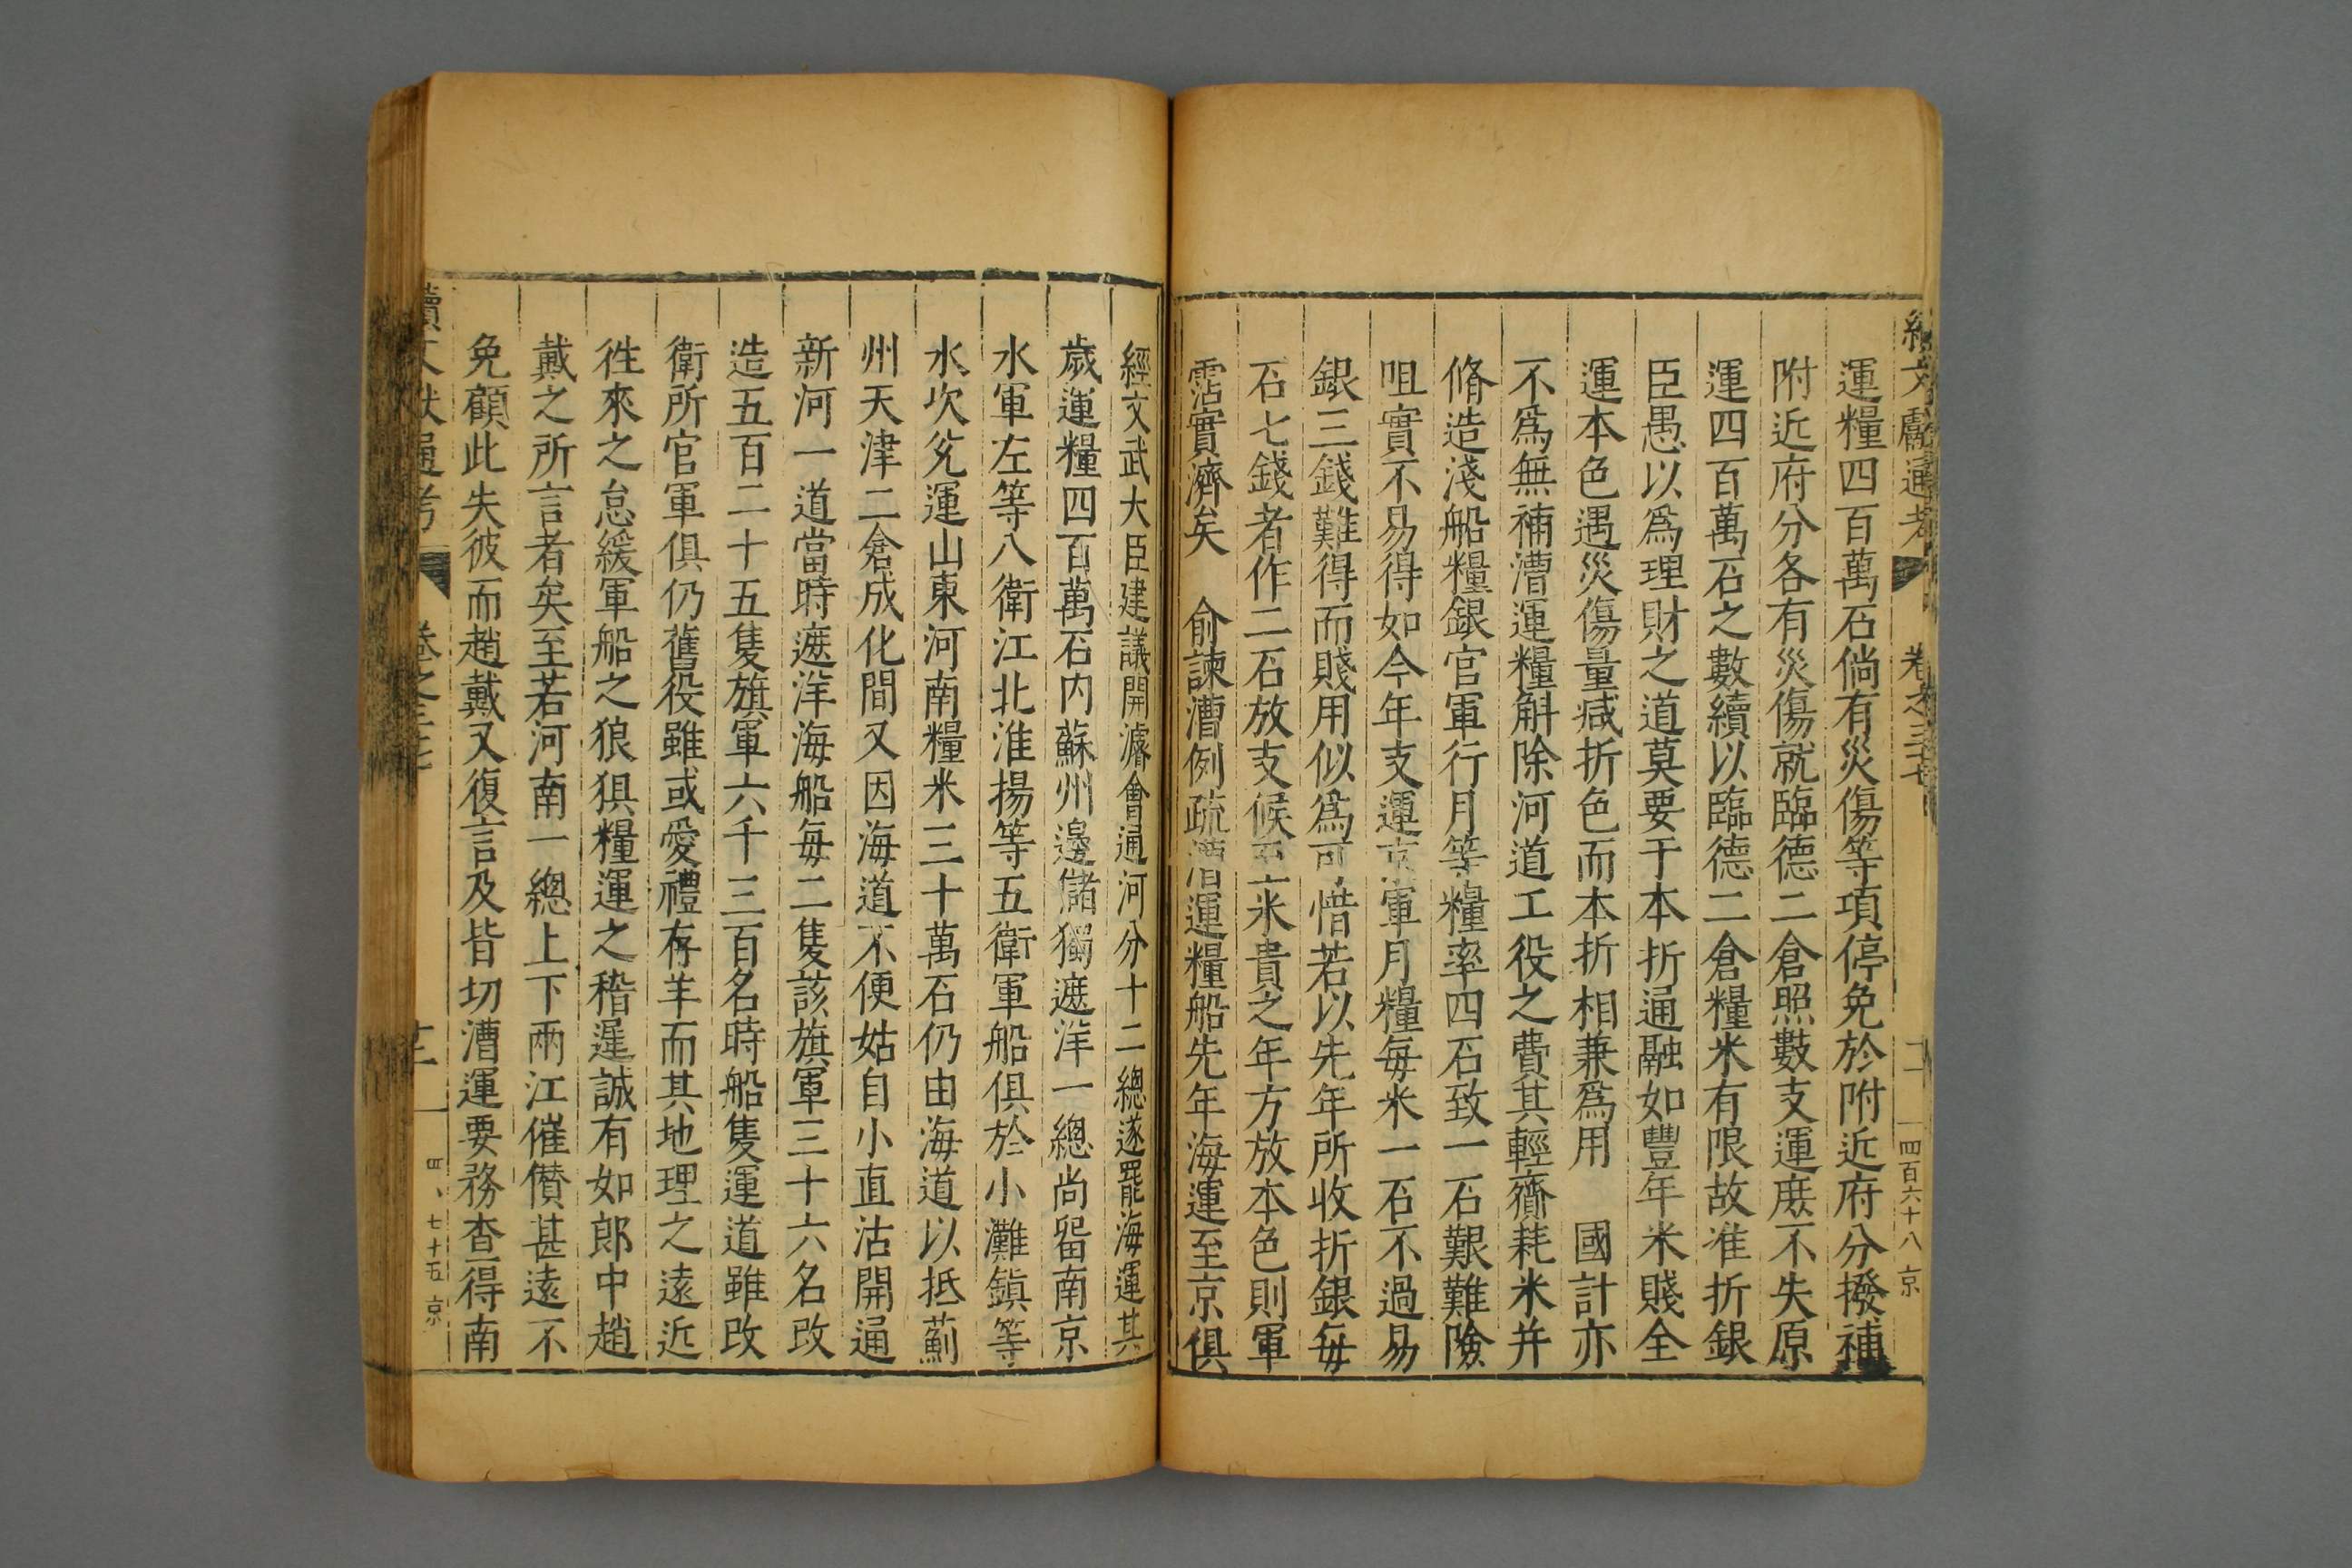 文獻通考 卷之三十七 四百六十八 京
運糧四百萬石倘有災傷等項停免於附近府分撥補
附近府分各有災傷就臨德二倉照數支運庶不失原
運四百萬石之數續以臨德二倉糧米有限故准折銀
臣愚以爲理財之道莫要于本折通融如豐年米賤全
運本色遇災傷量減折色而本折相兼爲用 國計亦
不爲無補漕運糧斛除河道工役之費其輕齎耗米并
脩造淺船糧銀官軍行月等糧率四石致一石艱難險
咀實不易得如今年支運京軍月糧每米一石不過易
銀三錢難得而賤用似爲可惜若以先年所收折銀每
石七錢者作二石放支候米貴之年方放本色則軍
霑實濟矣 俞諫漕例疏漕運糧船先年海運至京俱
經文武大臣建議開濬會通河分十二總遂罷海運其
歲運糧四百萬石内蘇州邊儲獨遮洋一總尚留南京
水軍左等八衛江北淮揚等五衛軍船俱於小灘鎭等
水次兊運山東河南糧米三十萬石仍由海道以抵薊
州天津二倉成化間又因海道不便姑自小直沽開通
新河一道當時遮洋海船每二隻該旗軍三十六名改
造五百二十五隻旗軍六千三百名時船隻運道雖改
衛所官軍俱仍舊役雖或愛禮存羊而其地理之遠近
徃來之怠緩軍船之狼狽糧運之稽遲誠有如郎中趙
戴之所言者矣至若河南一總上下兩江催儹甚遠不
免顧此失彼而趙戴又復言及皆切漕運要務查得南
續文獻通考 卷之三十七 七十五 京